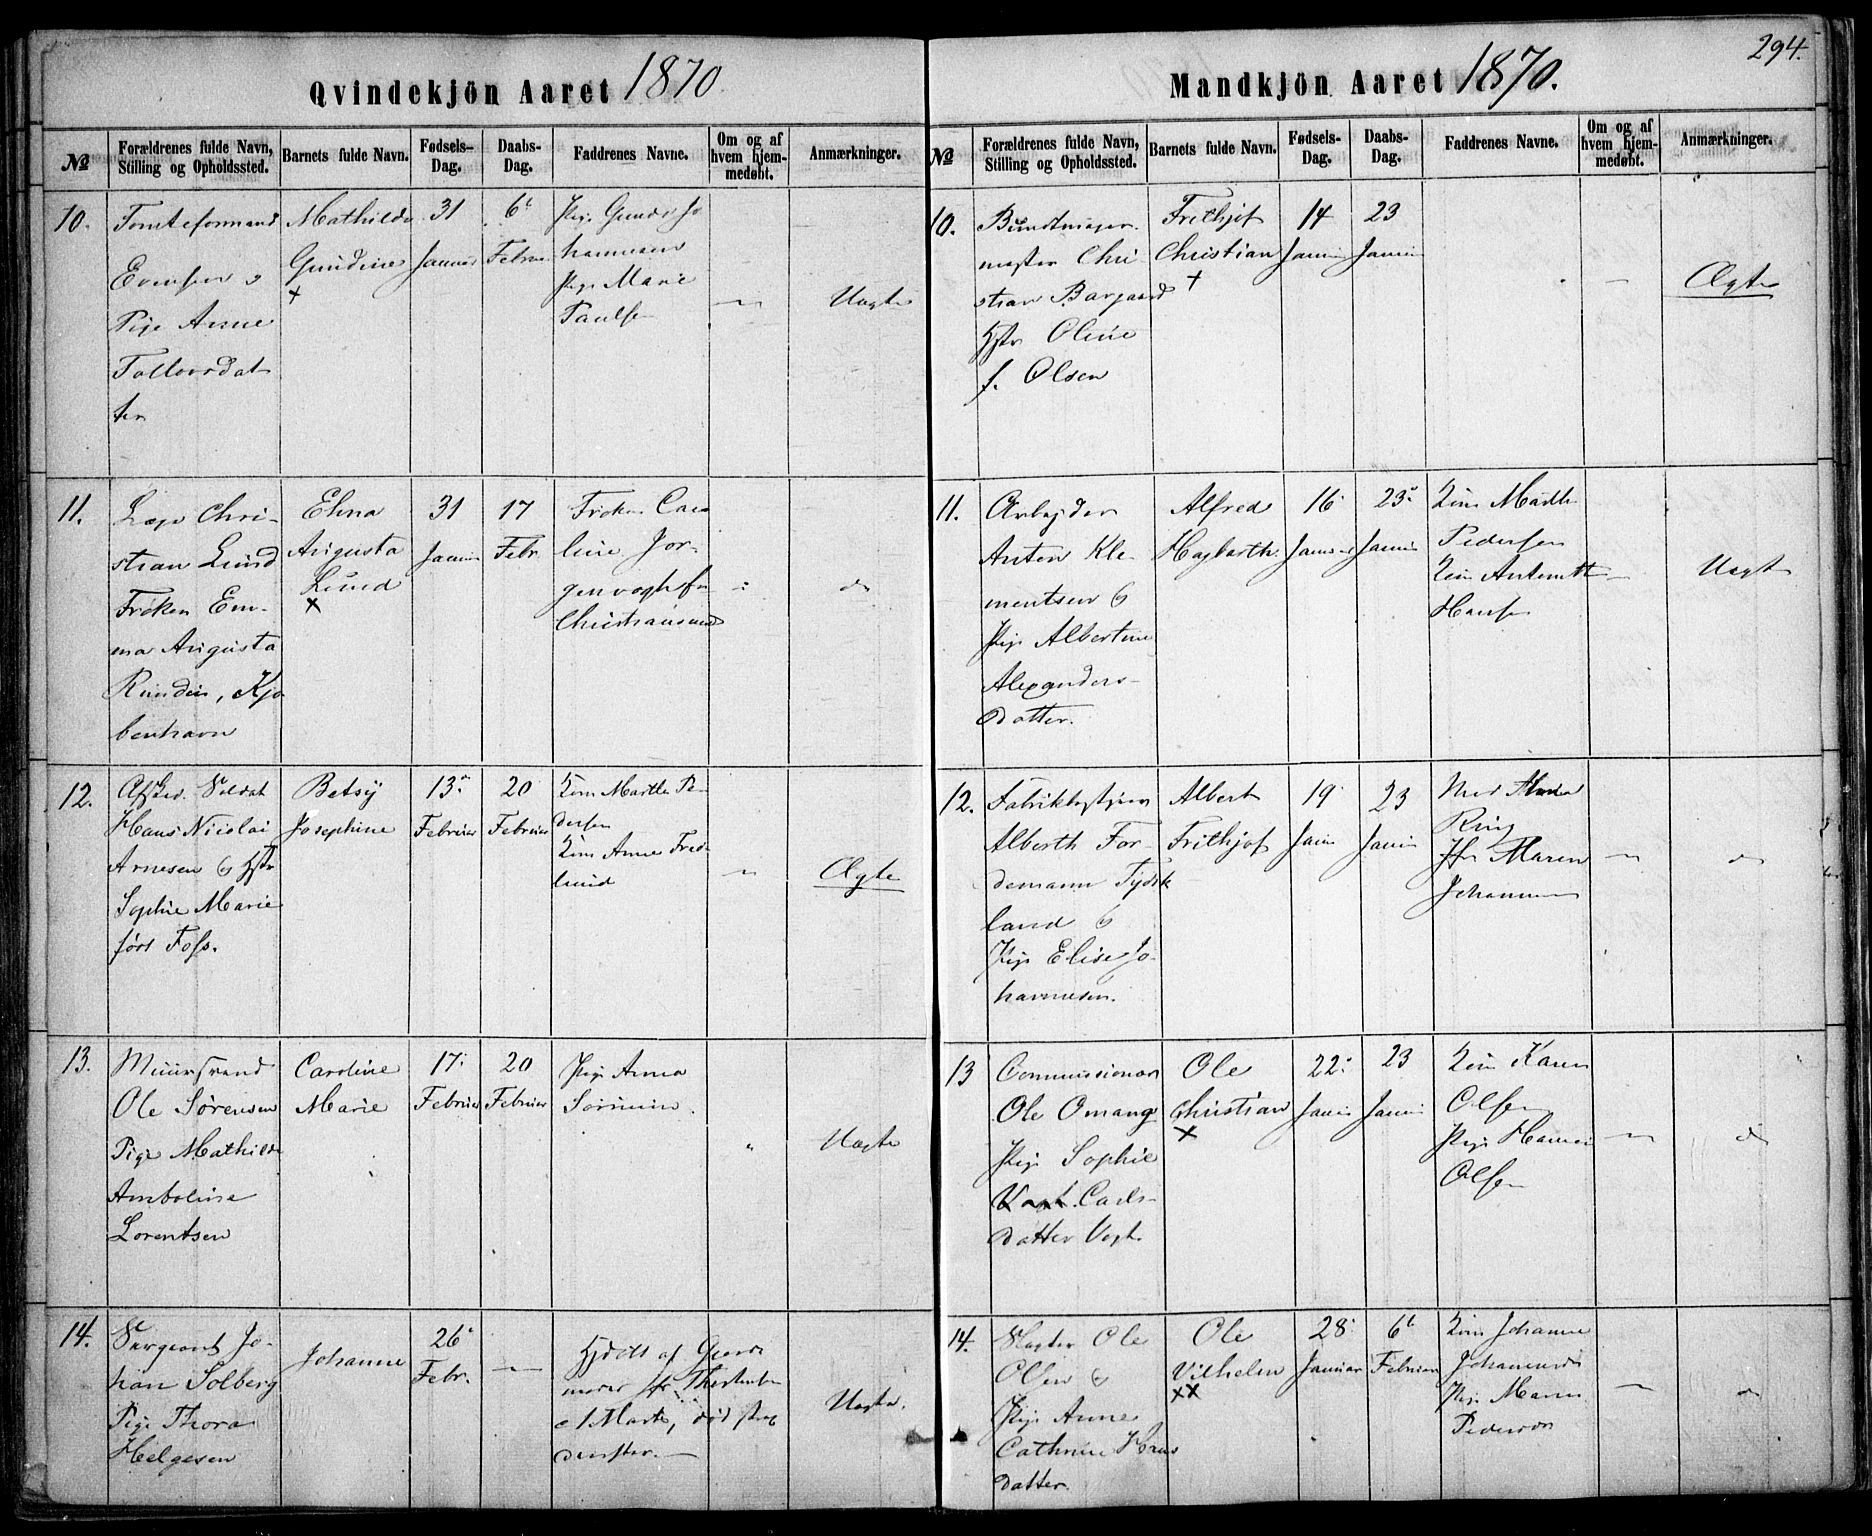 294.
Qvindekjön Aaret 1870
№
Forældrenes fulde Navn, Stilling og Opholdssted.
Barnets fulde Navn.
Fødsels-Dag.
Daabs-Dag.
Faddrenes Navne.
Om og af hvem hjem-medøbt.
Anmærkninger.
10.
Tomteformand
Evensen
Pige Anne
Tollevsdat
ter
Mathilde
Gundine
+
31
Januar
6t
Februar
Pige Gunda Jo
hannesen
Pige Marie
Paulse
Uægte
11.
Læge Chri-
stian Lund
Frøken Em-
ma Augusta
Kjø
benhavn
Elina
Augusta
Lund
x
31
Januar
17
Febr.
Frøken Caro
line Jør-
Christiansund
do
12.
Afsked. Soldat
Hans Nicolai
Arnesen og Hstr
Sophie Marie
født Foss.
Betsy
Josephine
13de
Februar
20
Februar
Kone Marthe Pe-
dersen
Kone Anne Fred-
lund
Ægte
13.
Muursvend
Ole Sørensen
Pige Mathilde
Amboline
Lorentsen
Caroline
Marie
17.
Februar
20
Februar
Pige Anna
Uægte
14.
Sergeant Jo-
han Solberg
Pige Thora
Helgesen
Johanne
26
Febr.
Hjdøbt af Gjorde
moder
1 Marts, død strax
derefter.
Uægte.
Mandkjön Aaret 1870.
№
Forældrenes fulde Navn, Stilling og Opholdssted.
Barnets fulde Navn.
Fødsels-Dag.
Daabs-Dag.
Faddrenes Navne.
Om og af hvem hjem-medøbt.
Anmærkninger.
10.
Bundtmager
mester Chri
stian Borgaard
Hstr Oline
f. Olsen
Frithjof
Christian
+
14
Januar
23
Januar
Ægte
11.
Arbejder
Anton Kle-
mentsen og
Pige Albertine
Alexanders-
datter.
Alfred
Hagbarth
16
Januar
23
Januar
Kone Marthe
Pedersen
Kone Antonette
Hanse
Uægte
12.
Fabrikbestyrer
Alberth For-
demann Tydsk
land og
Pige Elise Jo-
hannesen.
Albert
Frithjof
19
Januar
23
Januar
Ring
Jfr Maren
Johannesen
do
13
Commissionær
Ole Omang
Pige Sophie
Vogt Carls-
datter Vogt.
Ole
Christian
x
22.
Januar
23
Januar
Kone Karen
Olsen
Pige Hanna
Olsen
do
14.
Slagter Ole
Olsen og
Pige Anne
Cathrine Hans
datter.
Ole
Vilhelm
xx
28.
Januar
6t
Februar
Kone Johanne
Johannesen
Pige Maren
Pedersen
do